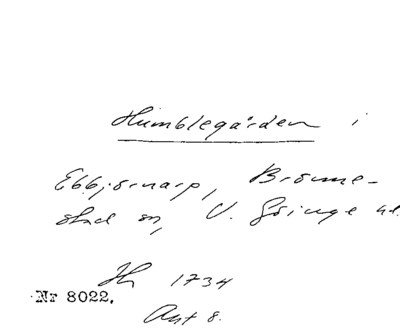 Humblegården i
Ebbjörnarp, Brönne-
stad sn, V. Göinge hd.
1734
Nr 8022.
Avt 8.